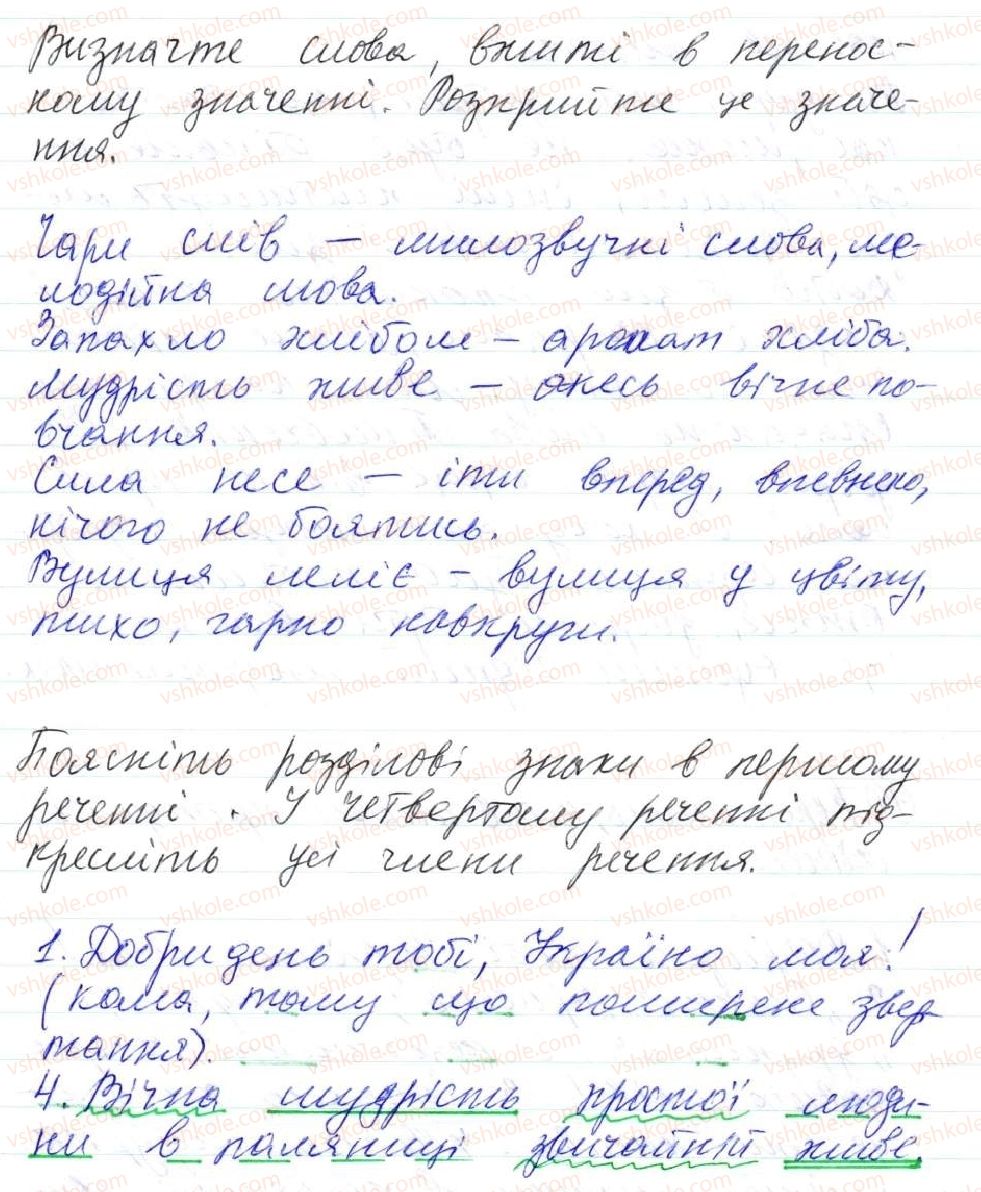 Визначте слова, вжиті в перенос-
ному значенні. Розкрийте це значе-
ння.
Чари слів – милозвучні слова, ме-
лодійна мова.
Запахло хлібом – аромат хліба.
Мудрість живе – якесь вічне по-
вчання.
Сила несе – іти вперед, впевнено,
нічого не боятись.
Вулиця леліє – вулиця у цвіту,
тихо, гарно навкруги.
Поясніть розділові знаки в першому
реченні. У четвертому реченні під-
кресліть усі члени речення.
1. Добридень тобі, Україно моя!
(кома, тому що поширене звер-
тання).
4. Вічна мудрість простої люди-
ни в паляниці звичайній живе.